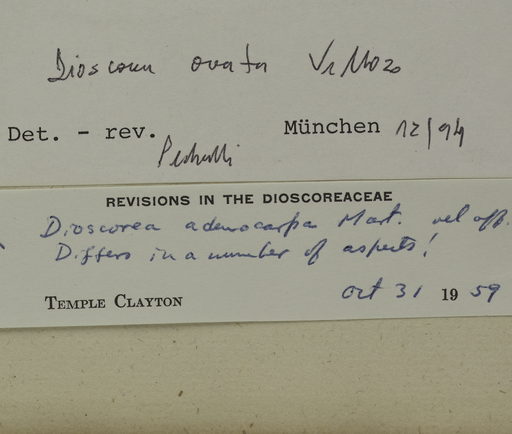 Dioscorea ovata Vellozo
Det. - rev. München 12/94
Pedralli
REVISIONS IN THE DIOSCOREACEAE
Dioscorea adenocarpa Mart. vel aff.
Differs in a number of aspects!
TEMPLE CLAYTON Oct 31 19 59